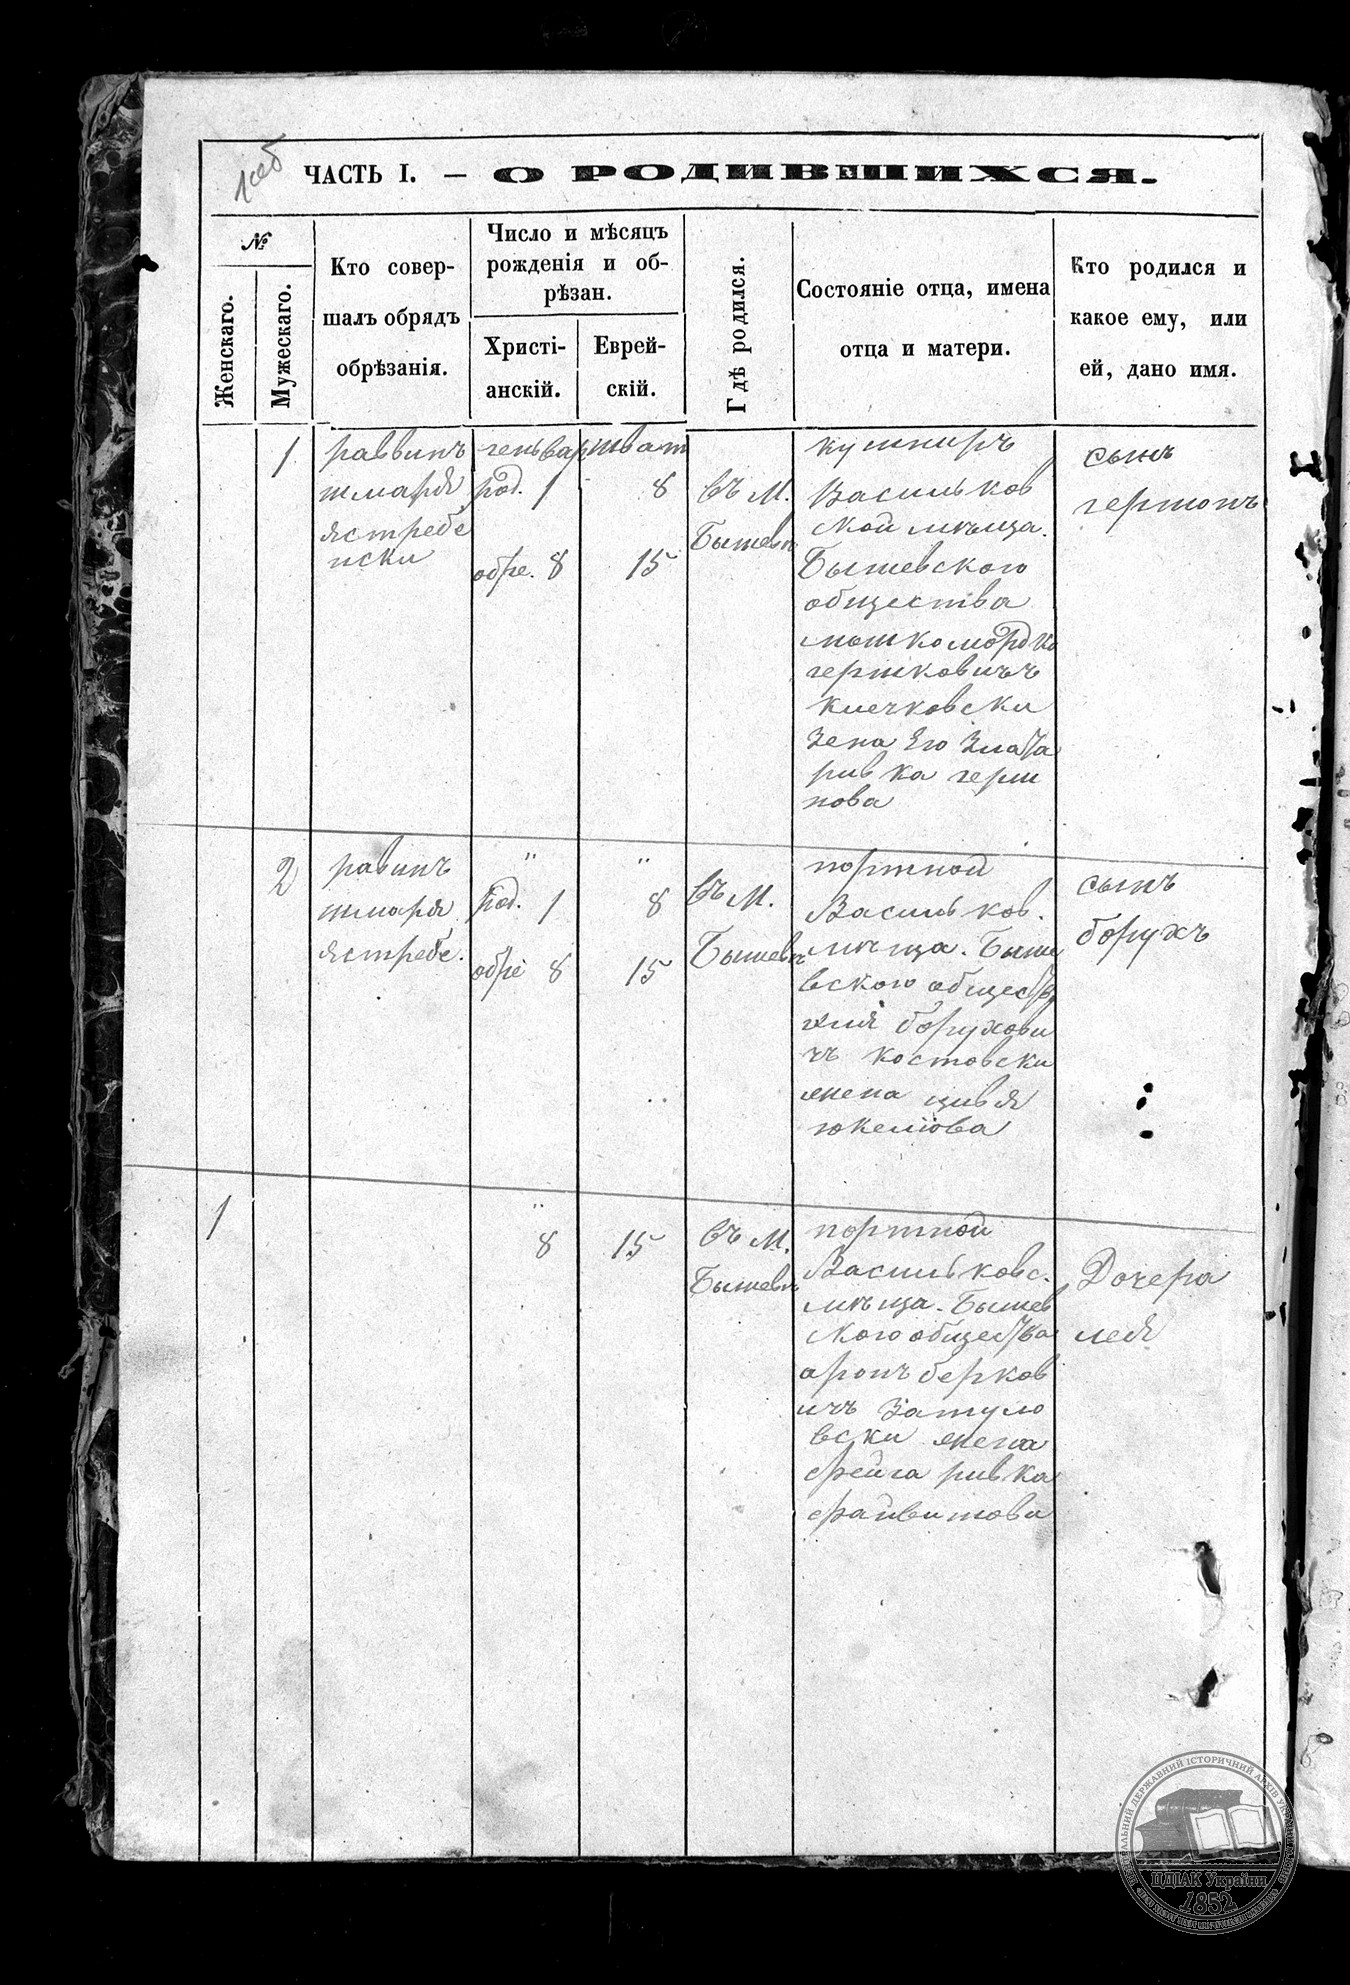 ЧАСТЬ I. — О РОДИВШИХСЯ.
№
Женскаго.
Мужескаго.
Кто совер-
шалъ обрядъ
обрѣзанія.
Число и мѣсяцъ
рожденія и об-
рѣзан.
Христі-
анскій.
Еврей-
скій.
Гдѣ родился.
Состояніе отца, имена
отца и матери.
Кто родился и
какое ему, или
ей, дано имя.
1
раввинъ
шмаря
ястребе
нски
геньвар
род. 1
обре. 8
шват
8
15
въ М.
Бышевѣ
кушниръ
Васильков
ской мѣща.
Бышевского
общества
мошко мордко
гершковичъ
Клечковски
Зена Его Злата
ривка герш
нова
сынъ
гершонъ
2
равинъ
шмаря
ястребе.
"
род. 1
обре 8
"
8
15
въ М.
Бышевѣ
портной
Васильков.
мѣща. Быше
вского обществ
борухови
чъ костовски
жена цивя
юкелiова
сынъ
борухъ
1
"
8
15
въ М.
Бышевѣ
портной
Васильковс.
мѣща. Бышев
ского общества
аронъ берков
ичъ Затуло
вски жена
фейга ривка
файвишова
Дочера
лея
ЦЕНТРАЛЬНИЙ ДЕРЖАВНИЙ ІСТОРИЧНИЙ АРХІВ УКРАЇНИ
ЦДІАК України
1852